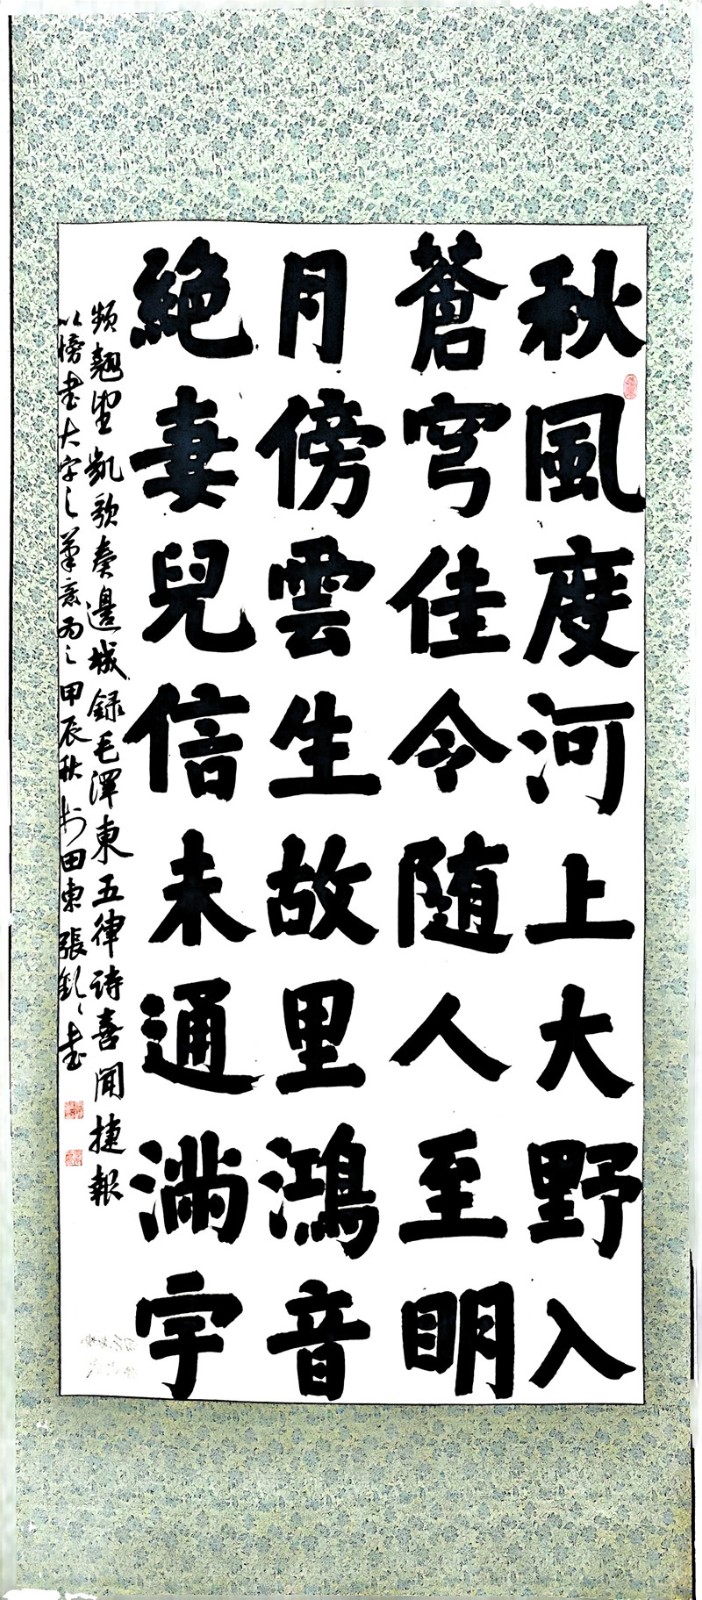 秋風度河上大野入
蒼穹佳令随人至明
月傍雲生故里鴻音
絶妻兒信未通满宇
频翹望凯歌奏邊城録毛澤東五律诗喜聞捷報
以榜书大字之筆意为之甲辰秋於田東張書